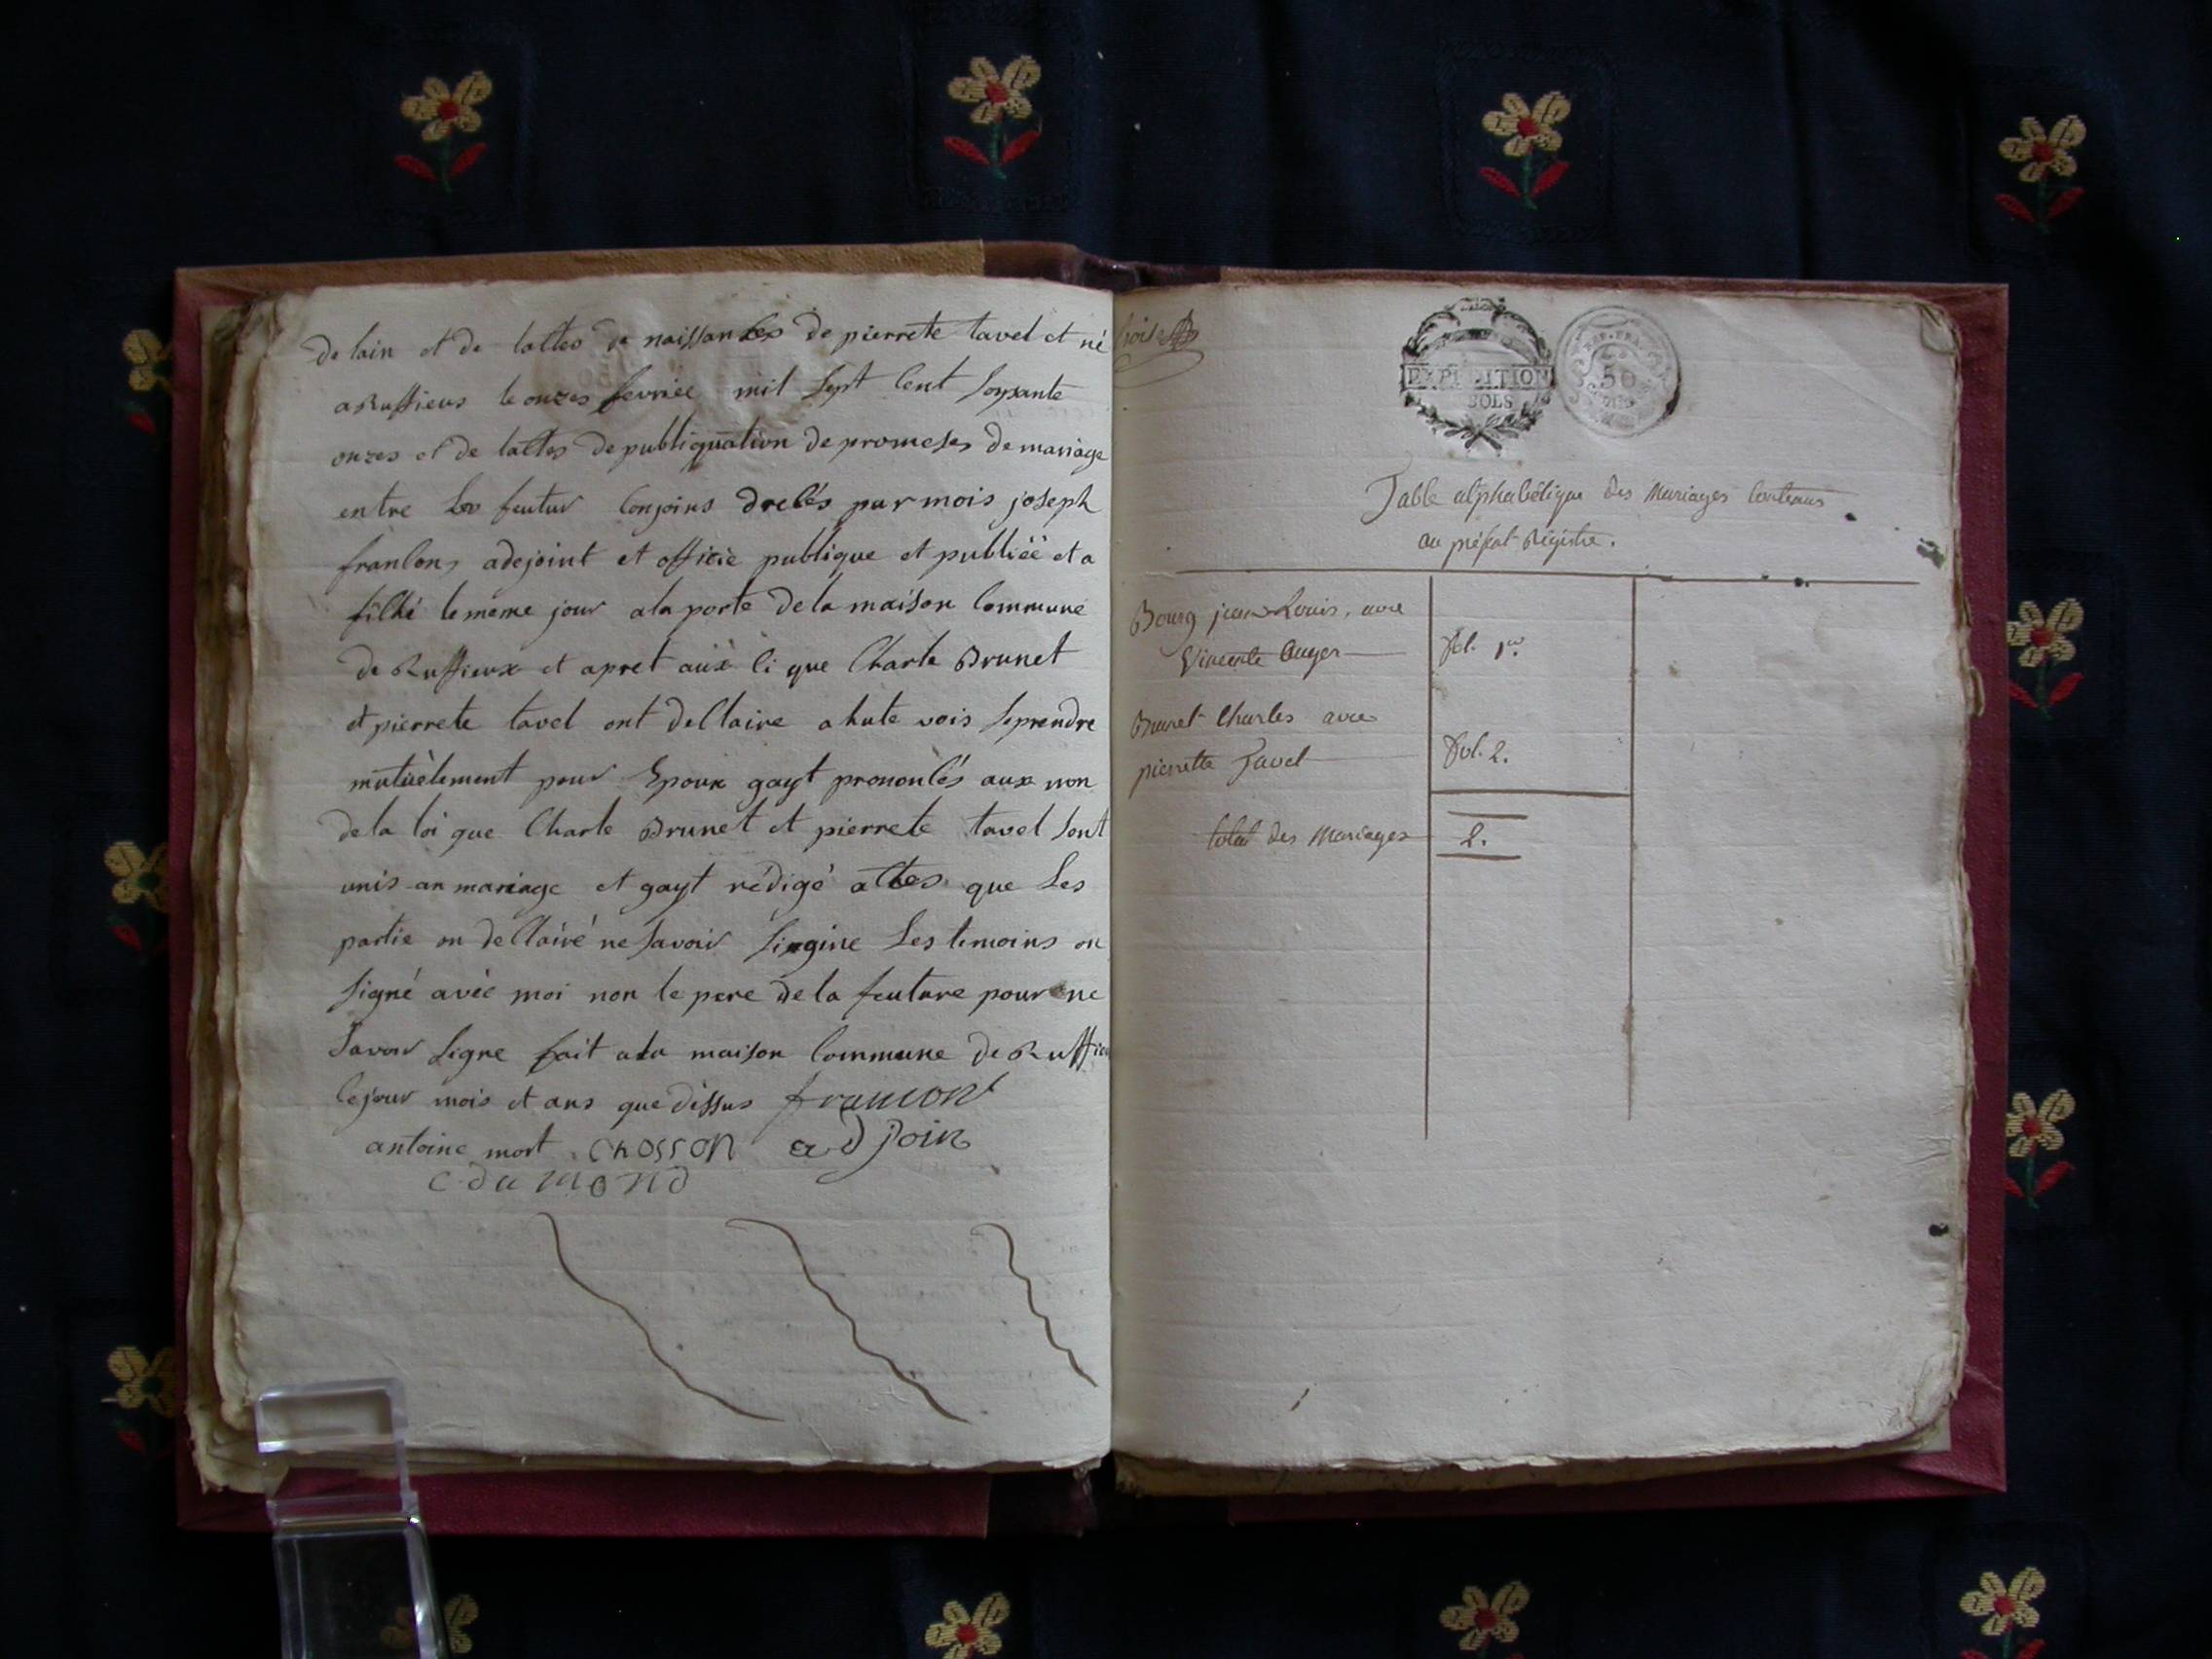 de lain et de lattes de naissances de pierrete tavel et né
a Ruffieus le onzes fevriée mil sept cent soysante
onzes et de lattes de publiquation de promeses de mariage
entre les feutur conjoins drecés par mois joseph
francon, adejoint et officiè publique et publiéé et a
filhé le mème jour a la porte de la maison commune
de Ruffieux et apret aüè ci que Charle Brunet
et pierrete tavel ont dellaire a hute vois se prendre
mutuèlement pour Epoux gayt prononcés aux non
de la loi que Charle Brunet et pierrete tavel sont
unis an mariage et gayt rédigé attes que Les
partie on dellairé ne savoir singine Les temoins on
signé avèc moi non le pere de la feuture pour ne
savoir signe fait a la maison commune de Ruffieu
le jour mois et ans que dissus francont
antoine mort chosson adjoin
c dumond
trois
EXPEDITION
SOLS
REP. FRA.
50
Table alphabétique des Mariages contenus
au présat Régistre.
Bourg jean Louis, avec
Vincente Auger
fol. 1er.
Brunet Charles avec
pierrette Tavel
fol. 2.
total des Mariages
2.